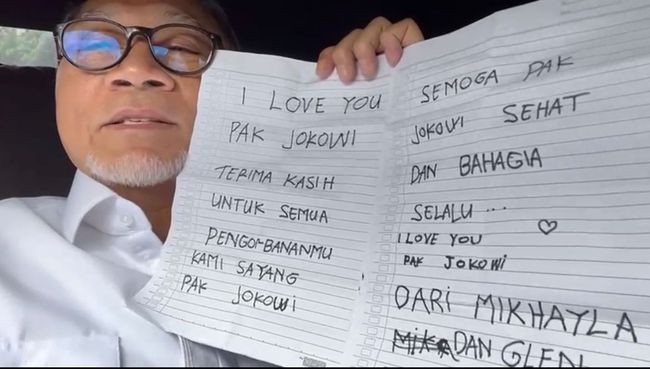 I LOVE YOU
PAK JOKOWI
TERIMA KASIH
UNTUK SEMUA
PENGOMBANANMU
KAMI SAYANG
PAK JOKOWI
SEMOGA PAK
JOKOWI SEHAT
DAN BAHAGIA
SELALU ...
I LOVE YOU
PAK JOKOWI
DARI MIKHAYLA
DAN GLEN